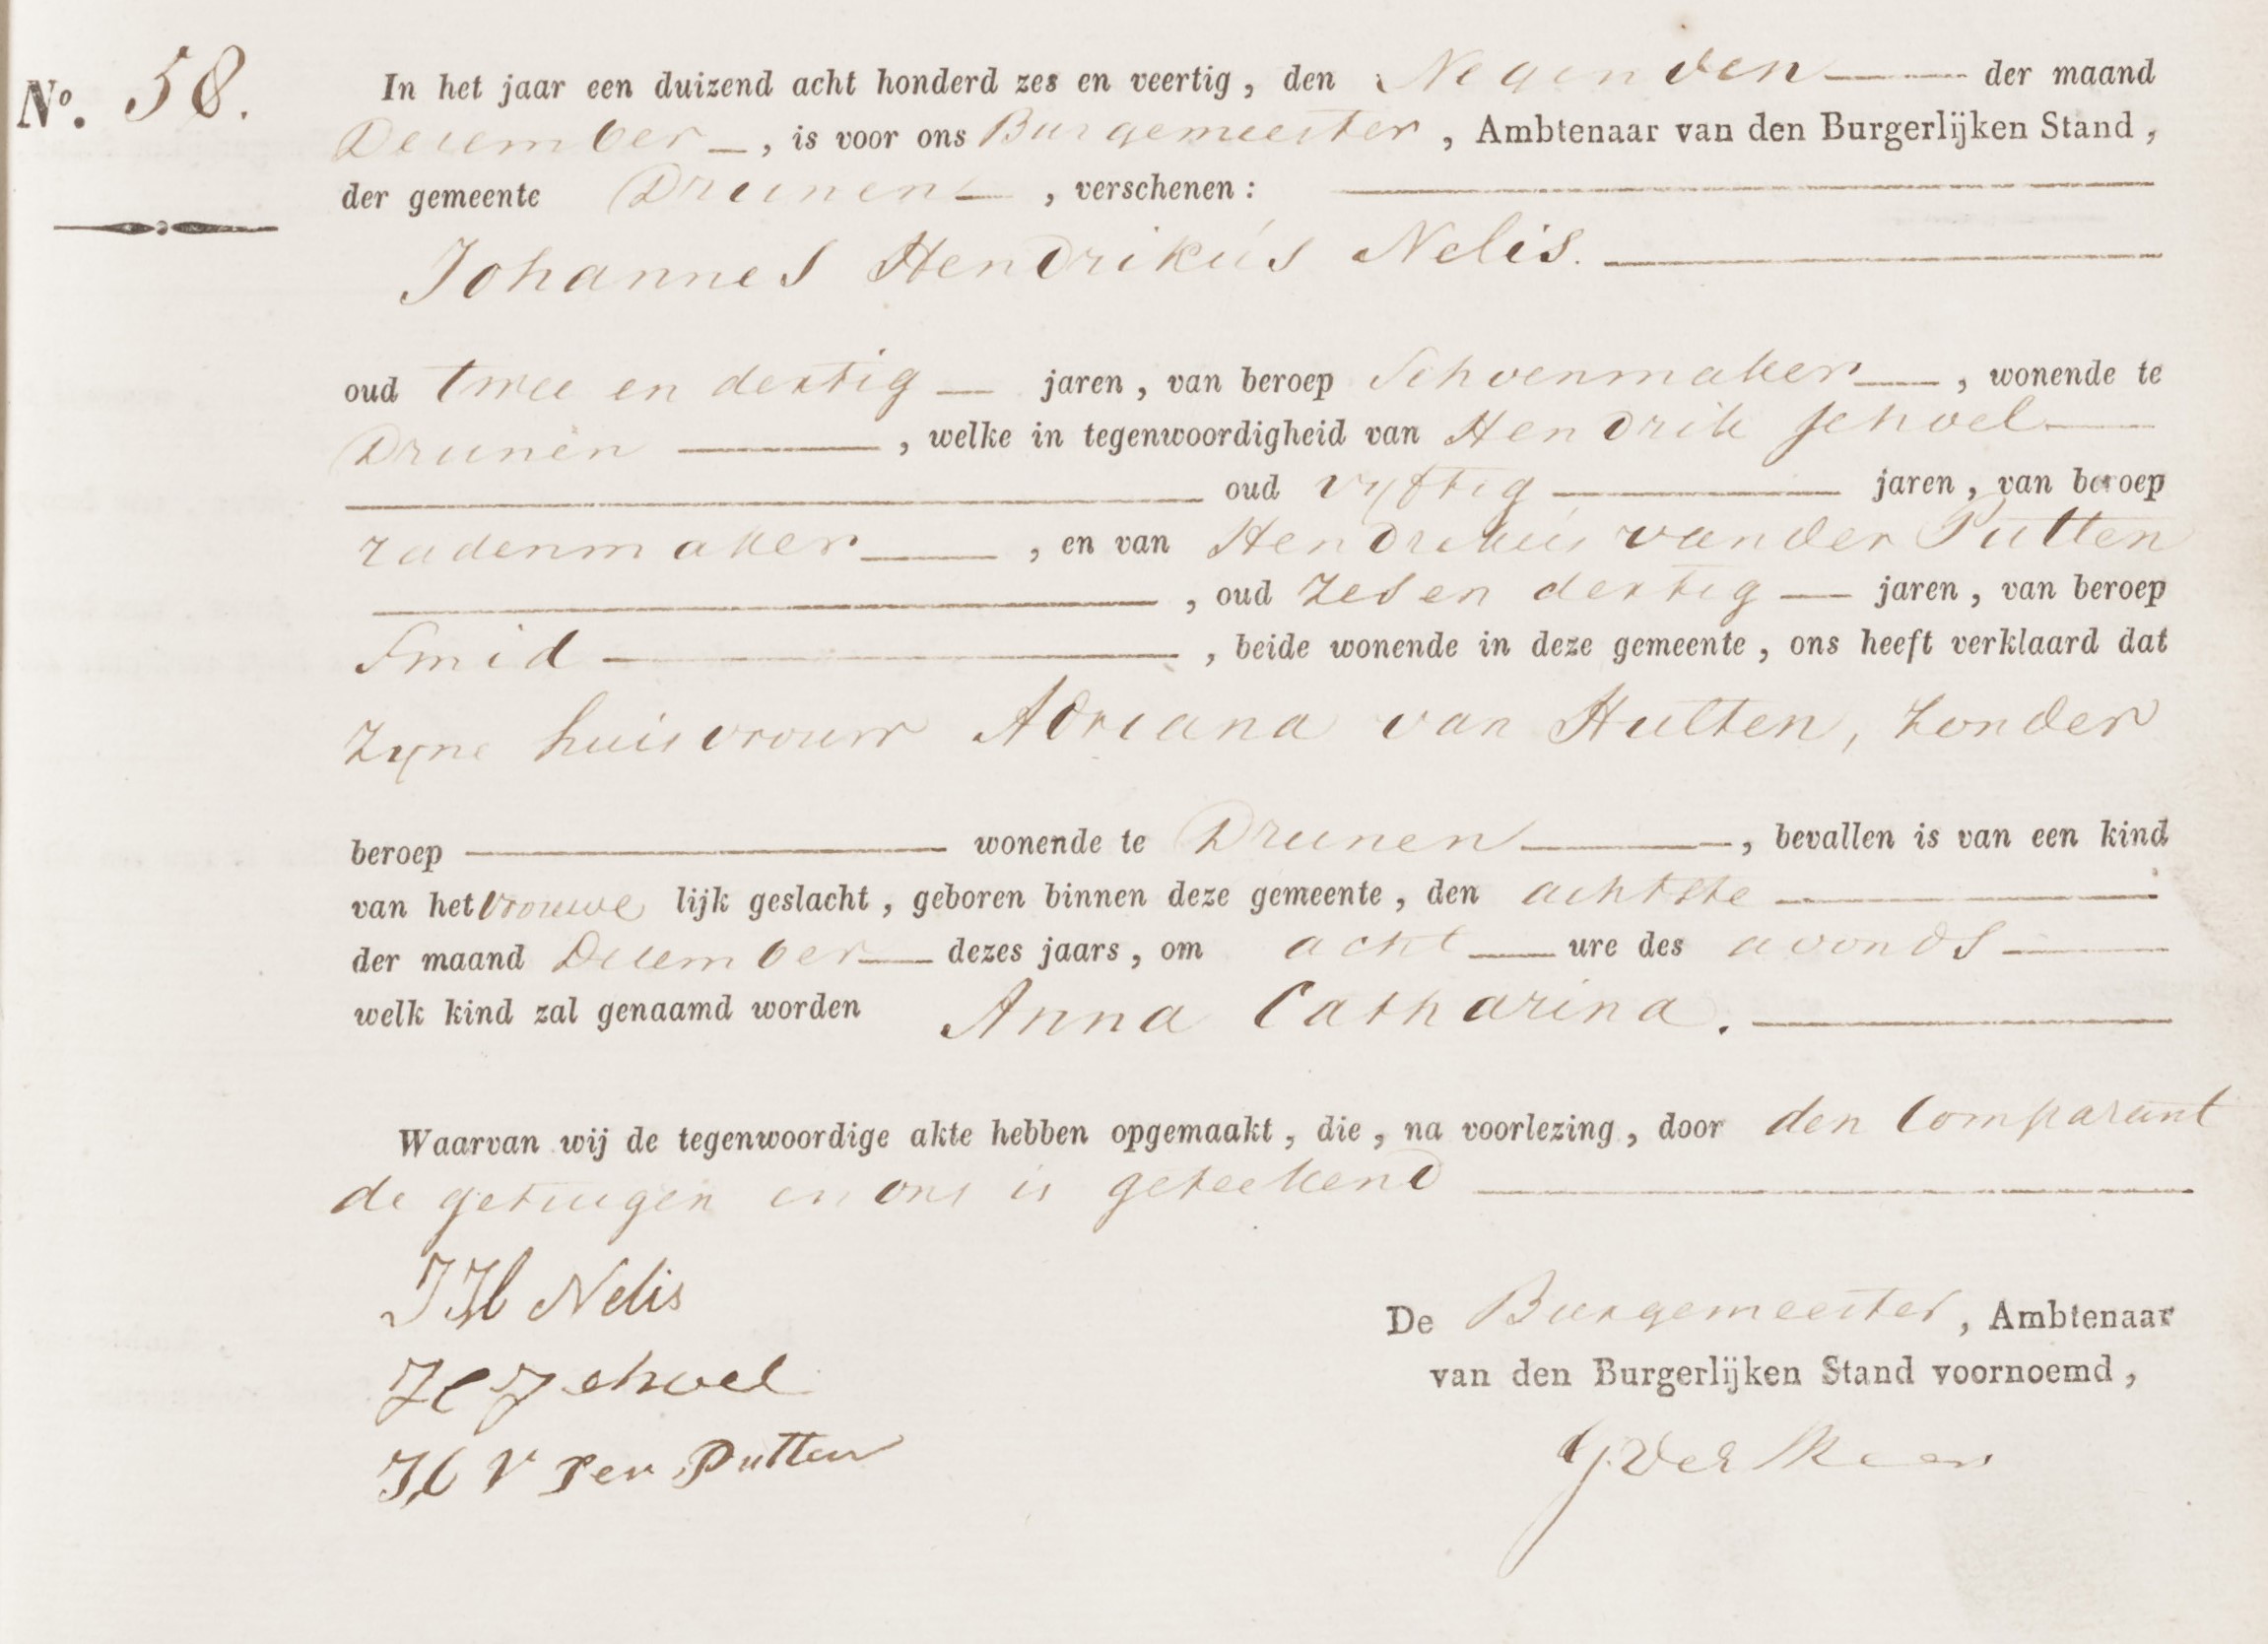 No. 58.
In het jaar een duizend acht honderd zes en veertig, den Negenden der maand
December, is voor ons Burgemeester, Ambtenaar van den Burgerlijken Stand,
der gemeente Drunen, verschenen:
Johannes Hendrikus Nelis.
oud twee en dertig jaren, van beroep Schoenmaker, wonende te
Drunen, welke in tegenwoordigheid van Hendrik Schoel
oud vyftig jaren, van beroep
radenmaker, en van Hendrikus van der Putten
, oud Zes en dertig jaren, van beroep
Smid, beide wonende in deze gemeente, ons heeft verklaard dat
Zyne huisvrouw Adriana van Hulten, Zonder
beroep wonende te Drunen, bevallen is van een kind
van het vrouwe lijk geslacht, geboren binnen deze gemeente, den achtste
der maand December dezes jaars, om acht ure des avonds
welk kind zal genaamd worden Anna Catharina.
Waarvan wij de tegenwoordige akte hebben opgemaakt, die, na voorlezing, door den Comparant
de getuigen en ons is geteekend
JH Nelis
H Schoel
H V der Putten
De Burgemeester, Ambtenaar
van den Burgerlijken Stand voornoemd,